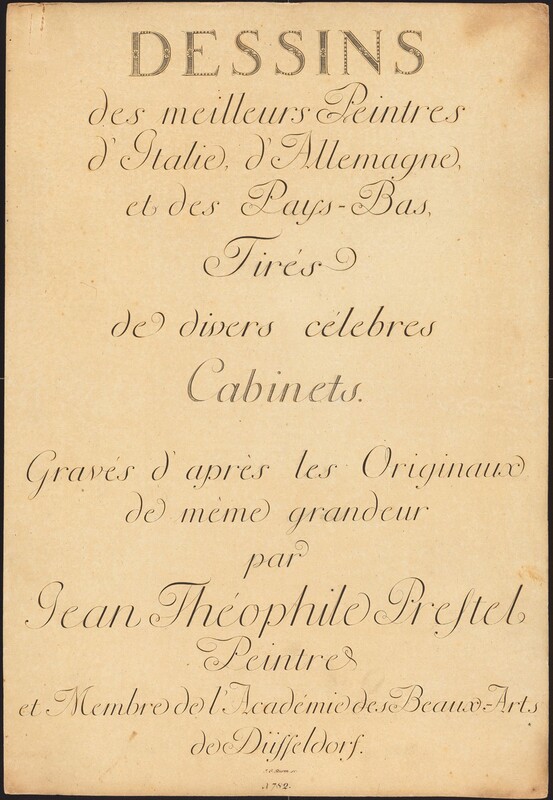 DESSINS
des meilleurs Peintres
d'Italie, d'Allemagne,
et des Pays-Bas,
Tirés
de divers célebres
Cabinets.
Gravés d'après les Originaux
de même grandeur
par
Jean Théophile Preſtel
Peintre
et Membre de l'Académie des Beaux-Arts
de Düſſeldorf.
A 782.